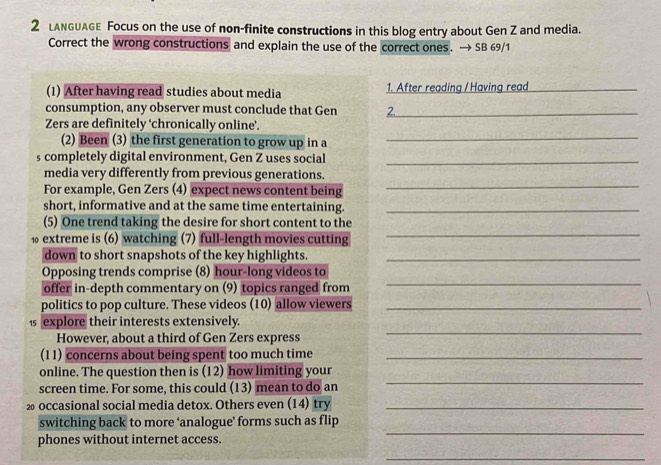 2 LANGUAGE Focus on the use of non-finite constructions in this blog entry about Gen Z and media.
Correct the wrong constructions and explain the use of the correct ones. → SB 69/1
(1) After having read studies about media
consumption, any observer must conclude that Gen
Zers are definitely 'chronically online'.
(2) Been (3) the first generation to grow up in a
5 completely digital environment, Gen Z uses social
media very differently from previous generations.
For example, Gen Zers (4) expect news content being
short, informative and at the same time entertaining.
(5) One trend taking the desire for short content to the
10 extreme is (6) watching (7) full-length movies cutting
down to short snapshots of the key highlights.
Opposing trends comprise (8) hour-long videos to
offer in-depth commentary on (9) topics ranged from
politics to pop culture. These videos (10) allow viewers
15 explore their interests extensively.
However, about a third of Gen Zers express
(11) concerns about being spent too much time
online. The question then is (12) how limiting your
screen time. For some, this could (13) mean to do an
20 occasional social media detox. Others even (14) try
switching back to more 'analogue' forms such as flip
phones without internet access.
1. After reading / Having read
2.